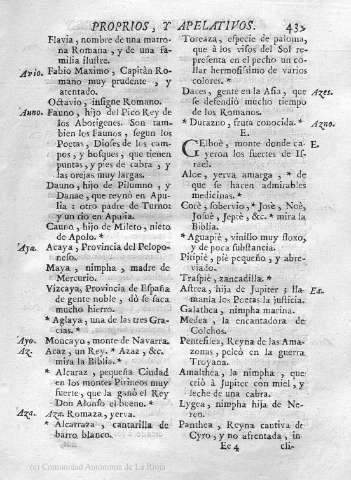 PROPRIOS, Y APELATIVOS. 43
Flavia, nombre de una matro-
na Romana, y de una fa-
milia ilustre.
Avio. Fabio Maximo, Capitàn Ro-
mano muy prudente, y
atentado.
Octavio, insigne Romano.
Auno. Fauno, hijo del Pico Rey de
los Aborigenes. Son tam-
bien los Faunos, segun los
Poetas, Dioses de los cam-
pos, y bosques, que tienen
puntas, y pies de cabra, y
las orejas muy largas.
Dauno, hijo de Pilumno, y
Danae, que reynò en Apu-
lia: otro padre de Turno:
y un rio en Apulia.
Cauno, hijo de Mileto, nieto
de Apolo. *
Aya. Acaya, Provincia del Pelopo-
neso.
Maya, nimpha, madre de
Mercurio.
Vizcaya, Provincia de España
de gente noble, dò se saca
mucho hierro.
* Aglaya, una de las tres Gra-
cias. *
Ayo. Moncayo, monte de Navarra.
Az. Acaz, un Rey. * Azaz, &c.
mira la Biblia. *
* Alcaraz, pequeña Ciudad
en los montes Pirineos muy
fuerte, que la ganò el Rey
Don Alonso el bueno. *
Aza. Aza. Romaza, yerva.
* Alcatraza, cantarilla de
barro blanco.
Toreaza, especie de paloma,
que à los visos del Sol re-
presenta en el pecho un co-
llar hermosissimo de varios
colores. *
Daces, gente en la Asia, que Azes.
se defendiò mucho tiempo
de los Romanos.
* Durazno, fruta conocida. * Azno.
E.
GElboè, monte donde ca- E.
yeron los fuertes de Is-
rael.
Aloe, yerva amarga, * de
que se hacen admirables
medicinas. *
Corè, sobervio, * Josè, Noè,
Josuè, Jepè, &c. * mira la
Biblia.
* Aguapiè, vinillo muy floxo,
y de poca substancia.
Pitipiè, piè pequeño, y abre-
viado.
Traspiè, zancadilla. *
Astrea, hija de Jupiter: lla- Ea.
mania los Poetas la justicia.
Galathea, nimpha marina.
Medea, la encantadora de
Colchos.
Pentesilea, Reyna de las Ama-
zonas, peleò en la guerra
Troyana.
Amalthea, la nimpha, que
criò à Jupiter con miel, y
leche de una cabra.
Lygea, nimpha hija de Ne-
reo.
Panthea, Reyna cautiva de
Cyro, y no afrentada, in
Ee 4 cli-
(c) Comunidad Autónoma de La Rioja